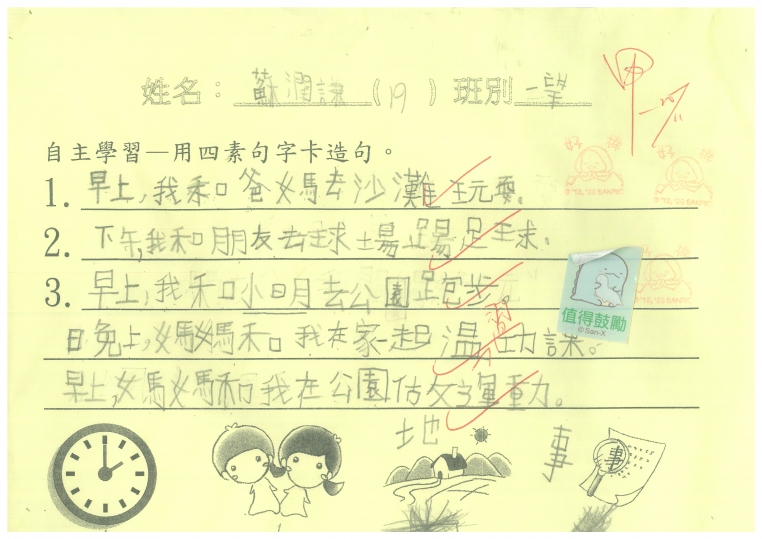 姓名：蘇潤謙（19）班別 一望
甲
自主學習—用四素句字卡造句。
1. 早上,我和爸媽去沙灘玩耍。
2. 下午,我和朋友去球場踢足球。
3. 早上,我和小明去公園跑步。
晚上,媽媽和我在家一起溫功課。
習
早上,媽媽和我在公園做運動。
值得鼓勵
© San-X
地
事
事